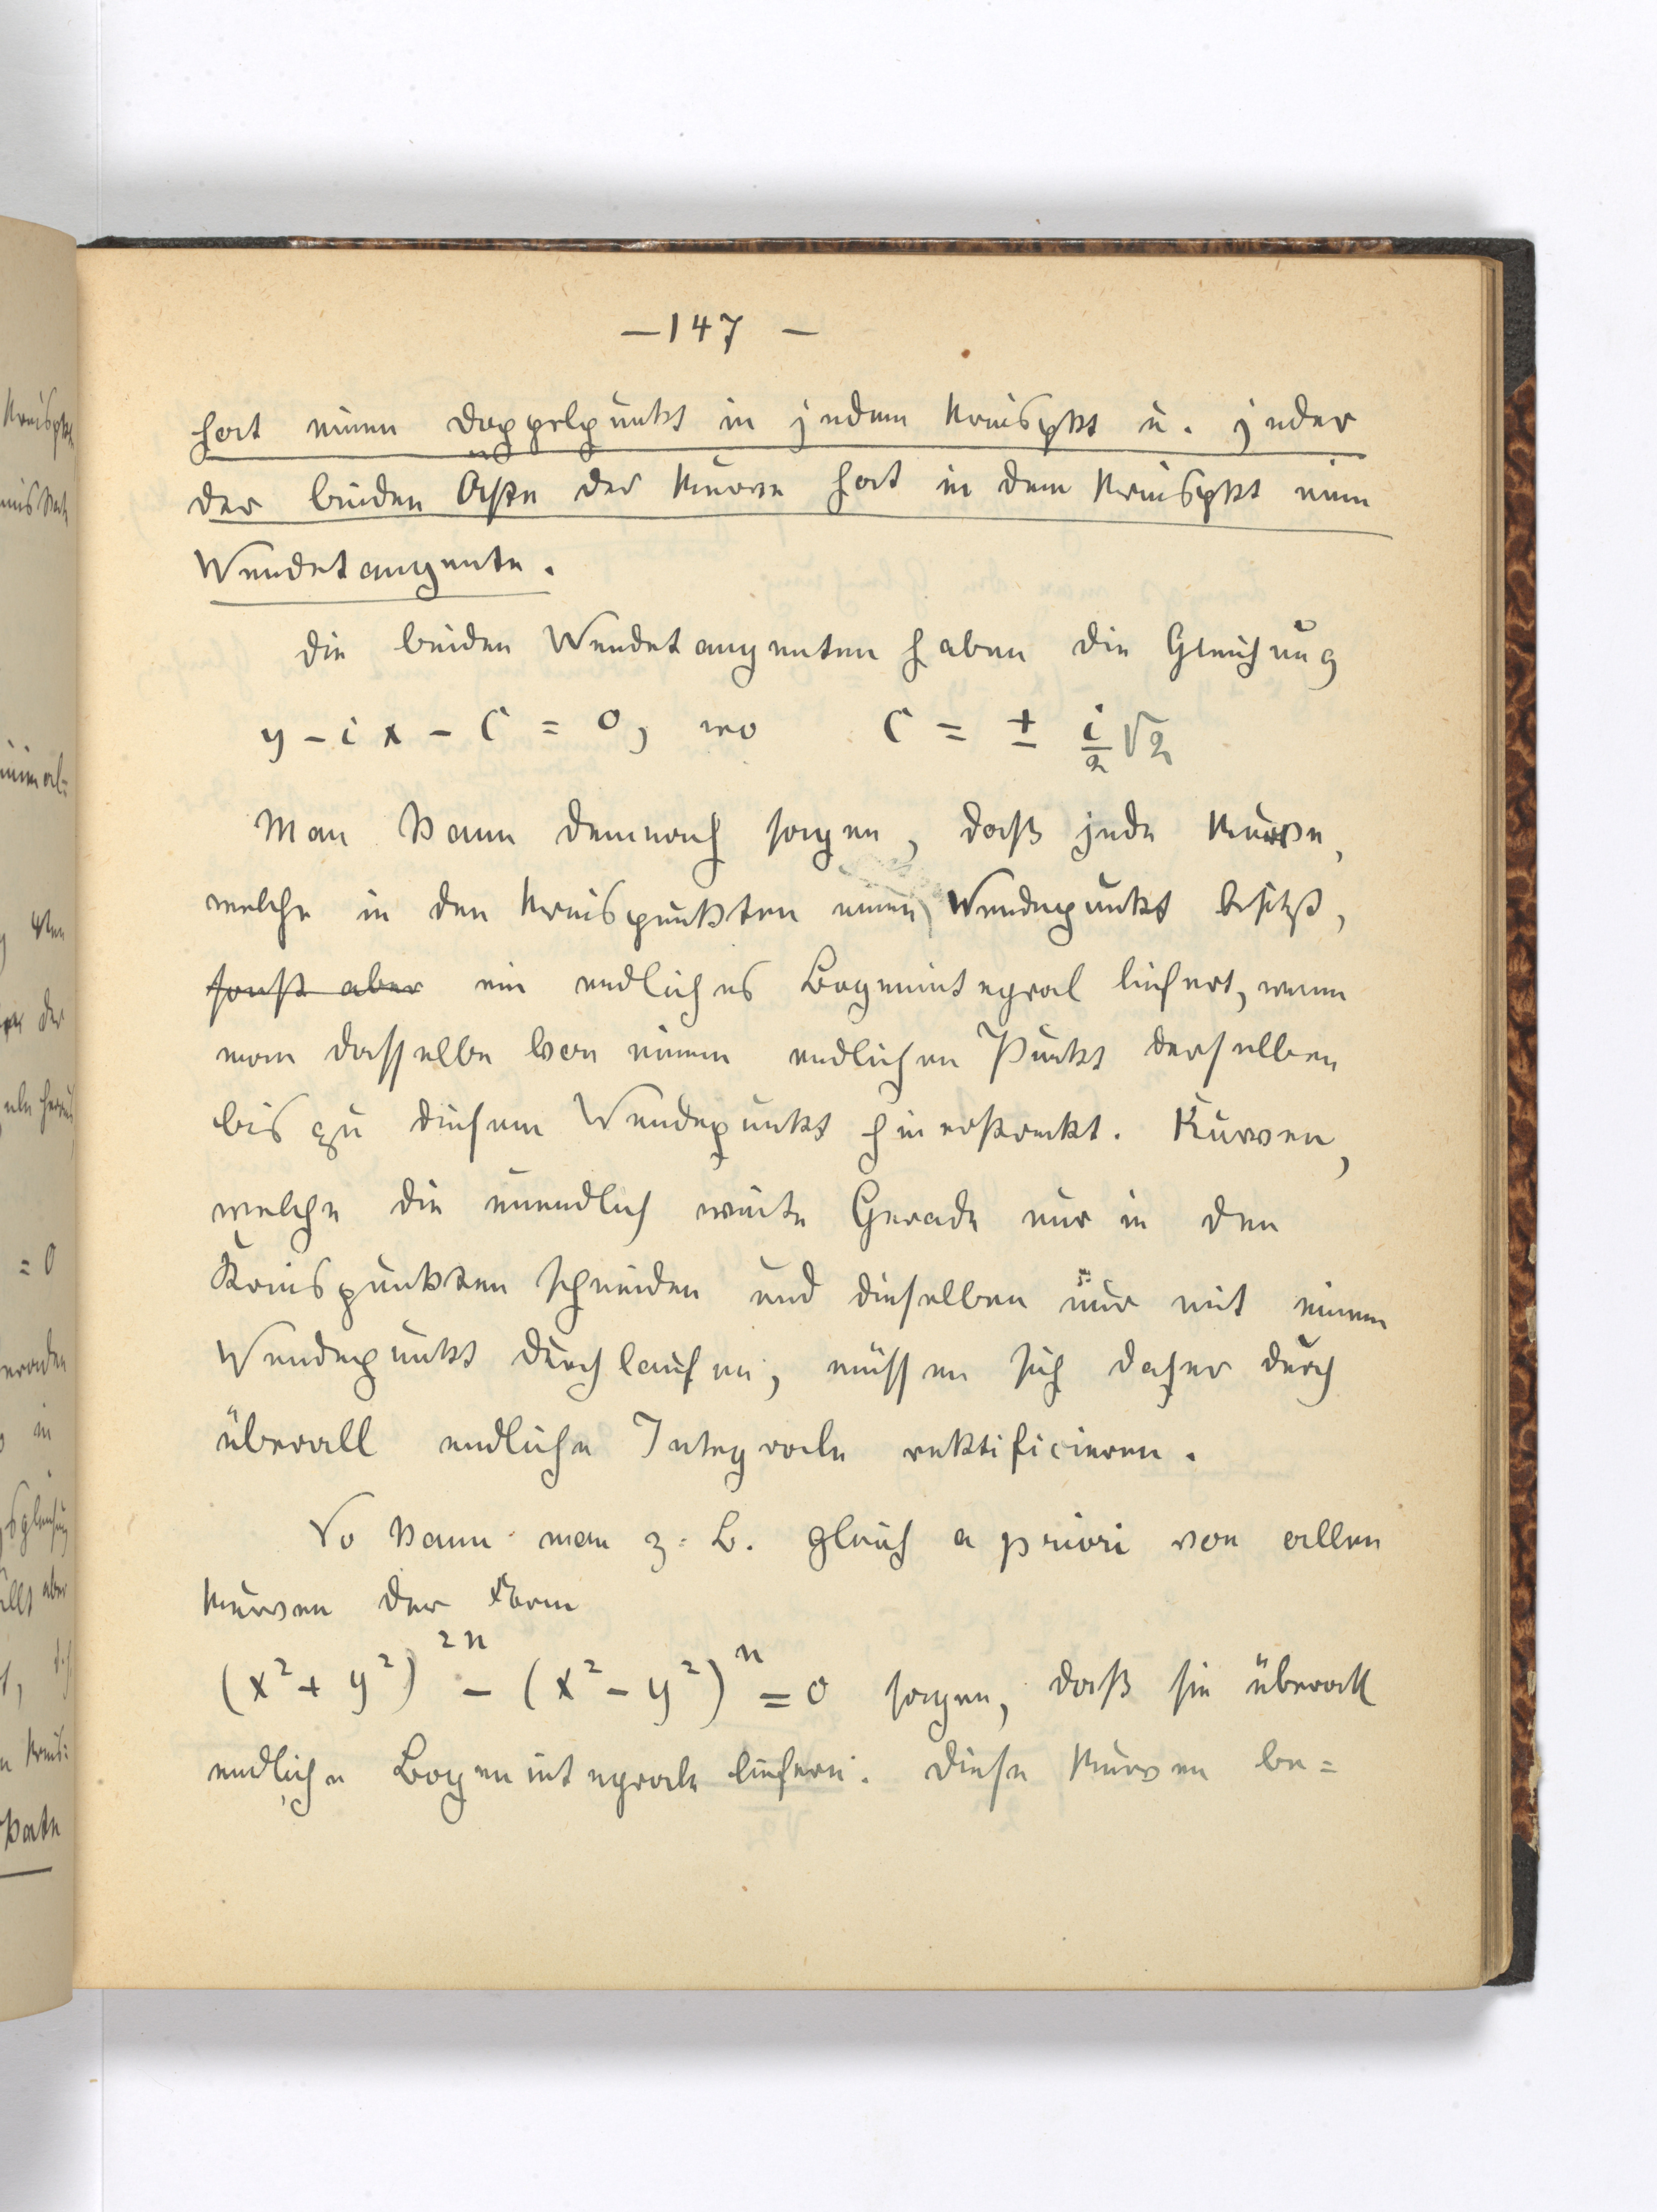 — 147 —
hat einen Doppelpunkt in jedem Kreispkt u. jeder
der beiden Äste der Kurve hat in dem Kreispkt eine
Wendetangente.
Die beiden Wendetangenten haben die Gleichung
y - i x - C = 0, wo C = ± i/2 √2
Man kann demnach sagen, daß jede Kurve,
welche in den Kreispunkten einen Wendepunkt besitzt,
sonst aber ein endliches Bogenintegral liefert, wenn
man dasselbe von einem endlichen Punkt derselben
bis zu diesem Wendepunkt hinerstreckt. Kurven,
welche die unendlich weite Gerade nur in den
Kreispunkten schneiden und dieselben nur mit einem
Wendepunkt durchlaufen, müssen sich daher durch
überall endliche Integrale rektificieren.
So kann man z. B. gleich a priori von allen
Kurven der Form
(x² + y²)²ⁿ - (x² - y²)ⁿ = 0 sagen, daß sie überall
endliche Bogenintegrale liefern. Diese Kurven be=